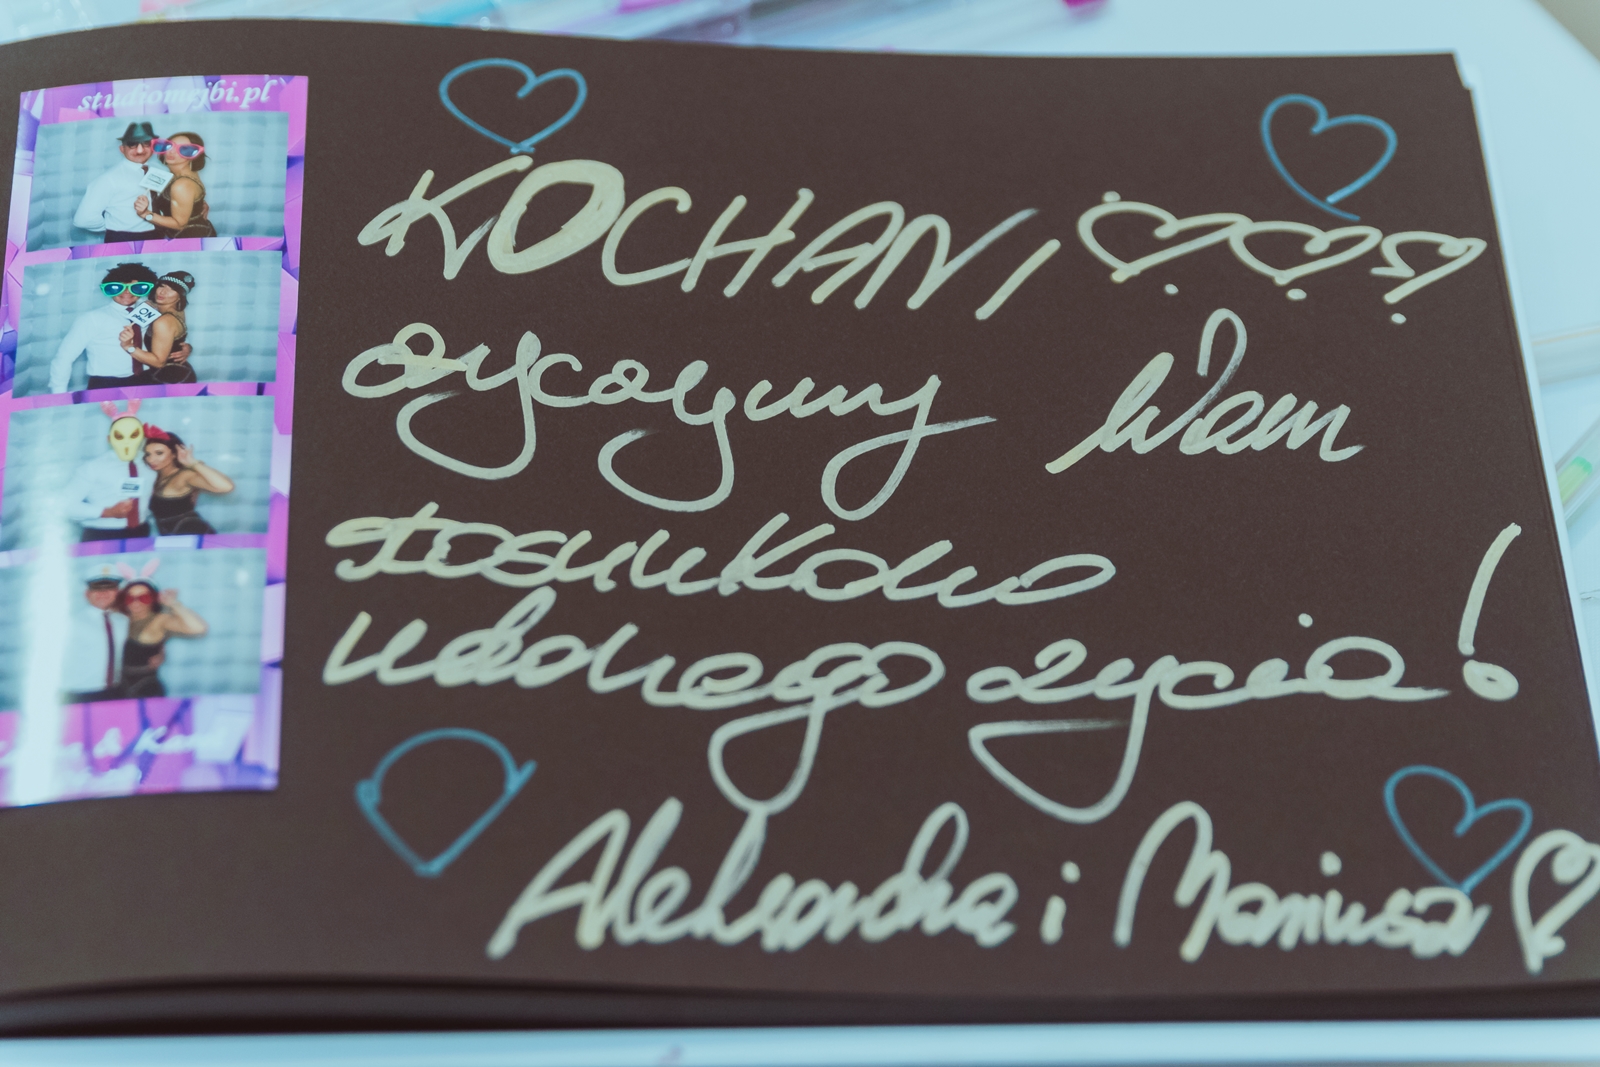 studiomejbi.pl
KOCHANI
życzymy Wam
stosunkowo
udanego życia!
Aleksandra i Mariusz
ON
&